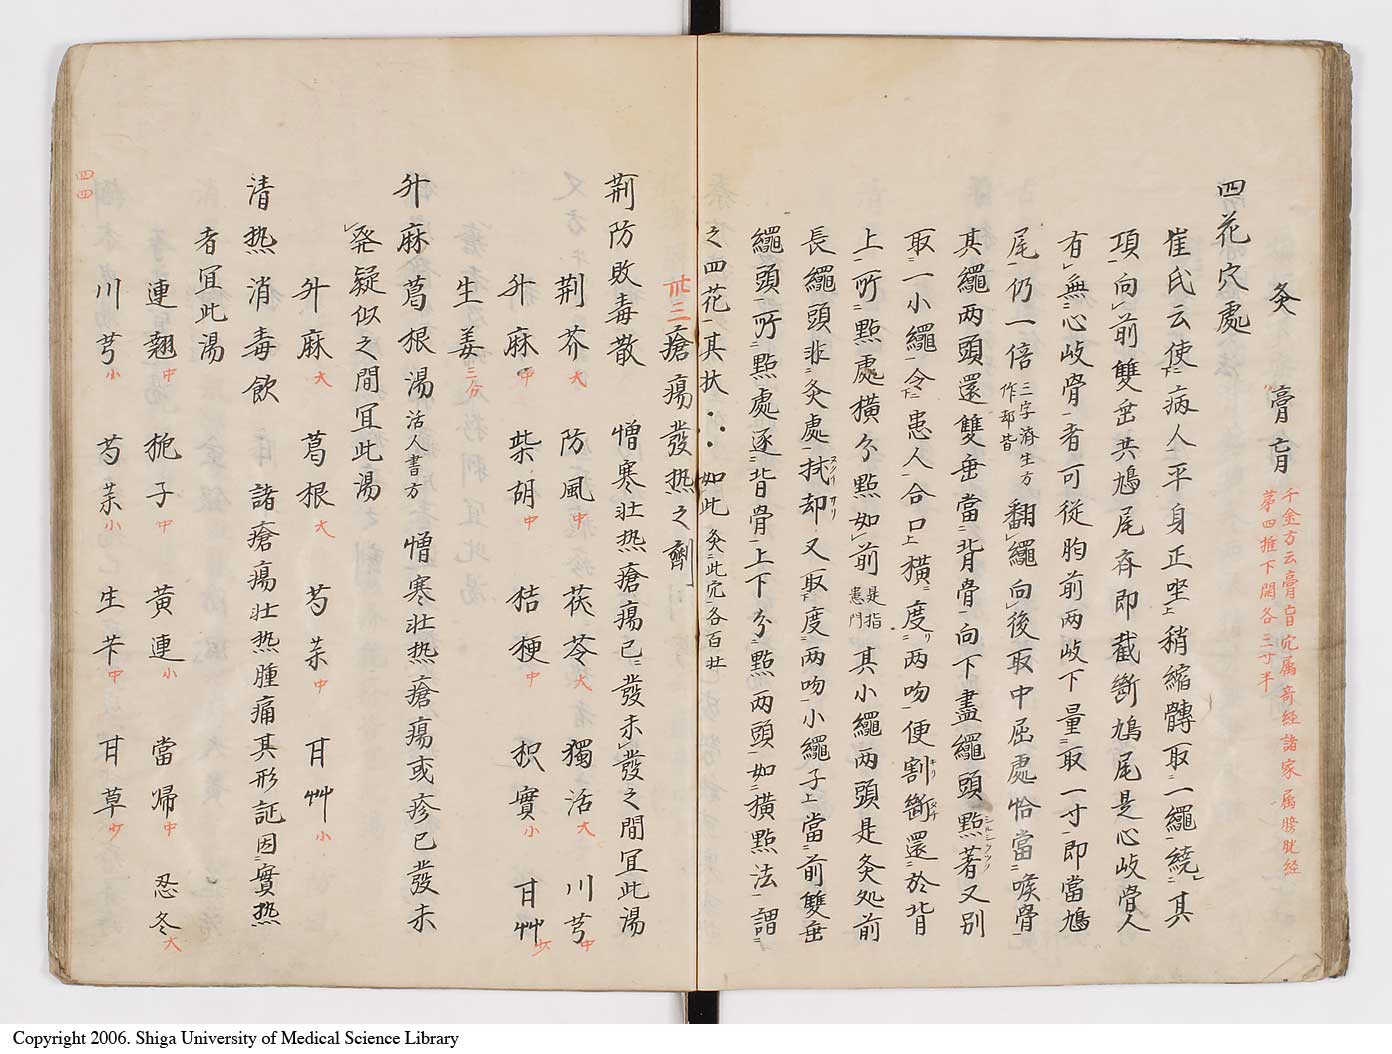 灸 膏肓 千金方云膏肓穴属奇経諸家属膀胱経
第四推下開各三寸半
四花穴處
崔氏云使病人平身正坐稍縮髆取一繩繞其
項向前雙垂共鳩尾斉即截断鳩尾是心岐骨人
有無心岐骨者可従胷前両岐下量取一寸即當鳩
尾仍一倍 三字済生方作却皆 翻繩向後取中屈處恰當喉骨
其繩両頭還雙垂當背骨向下盡繩頭點著又別
取一小繩令患人合口横度両吻便割断還於背
上所點處横分點如前 是指患門 其小繩両頭是灸処前
長繩頭非灸處拭却又取度両吻小繩子上當前雙垂
繩頭所點處逐背骨上下分點両頭如横點法謂
之四花其状∴如此 灸此穴各百壮
卅三 瘡瘍發热之劑
荆防敗毒散 憎寒壮热瘡瘍已發未發之間冝此湯
荆芥大 防風中 茯苓大 獨活大 川芎中
升麻中 柴胡中 桔梗中 枳實小 甘艸少
生姜三分
升麻葛根湯 活人書方 憎寒壮热瘡瘍或疹已發未
発疑似之間冝此湯
升麻大 葛根大 芍薬中 甘艸小
清热消毒飲 諸瘡瘍壮热腫痛其形証因實热
者冝此湯
連翹中 梔子中 黄連小 當帰中 忍冬大
川芎小 芍薬小 生芐中 甘草少
四四
Copyright 2006. Shiga University of Medical Science Library